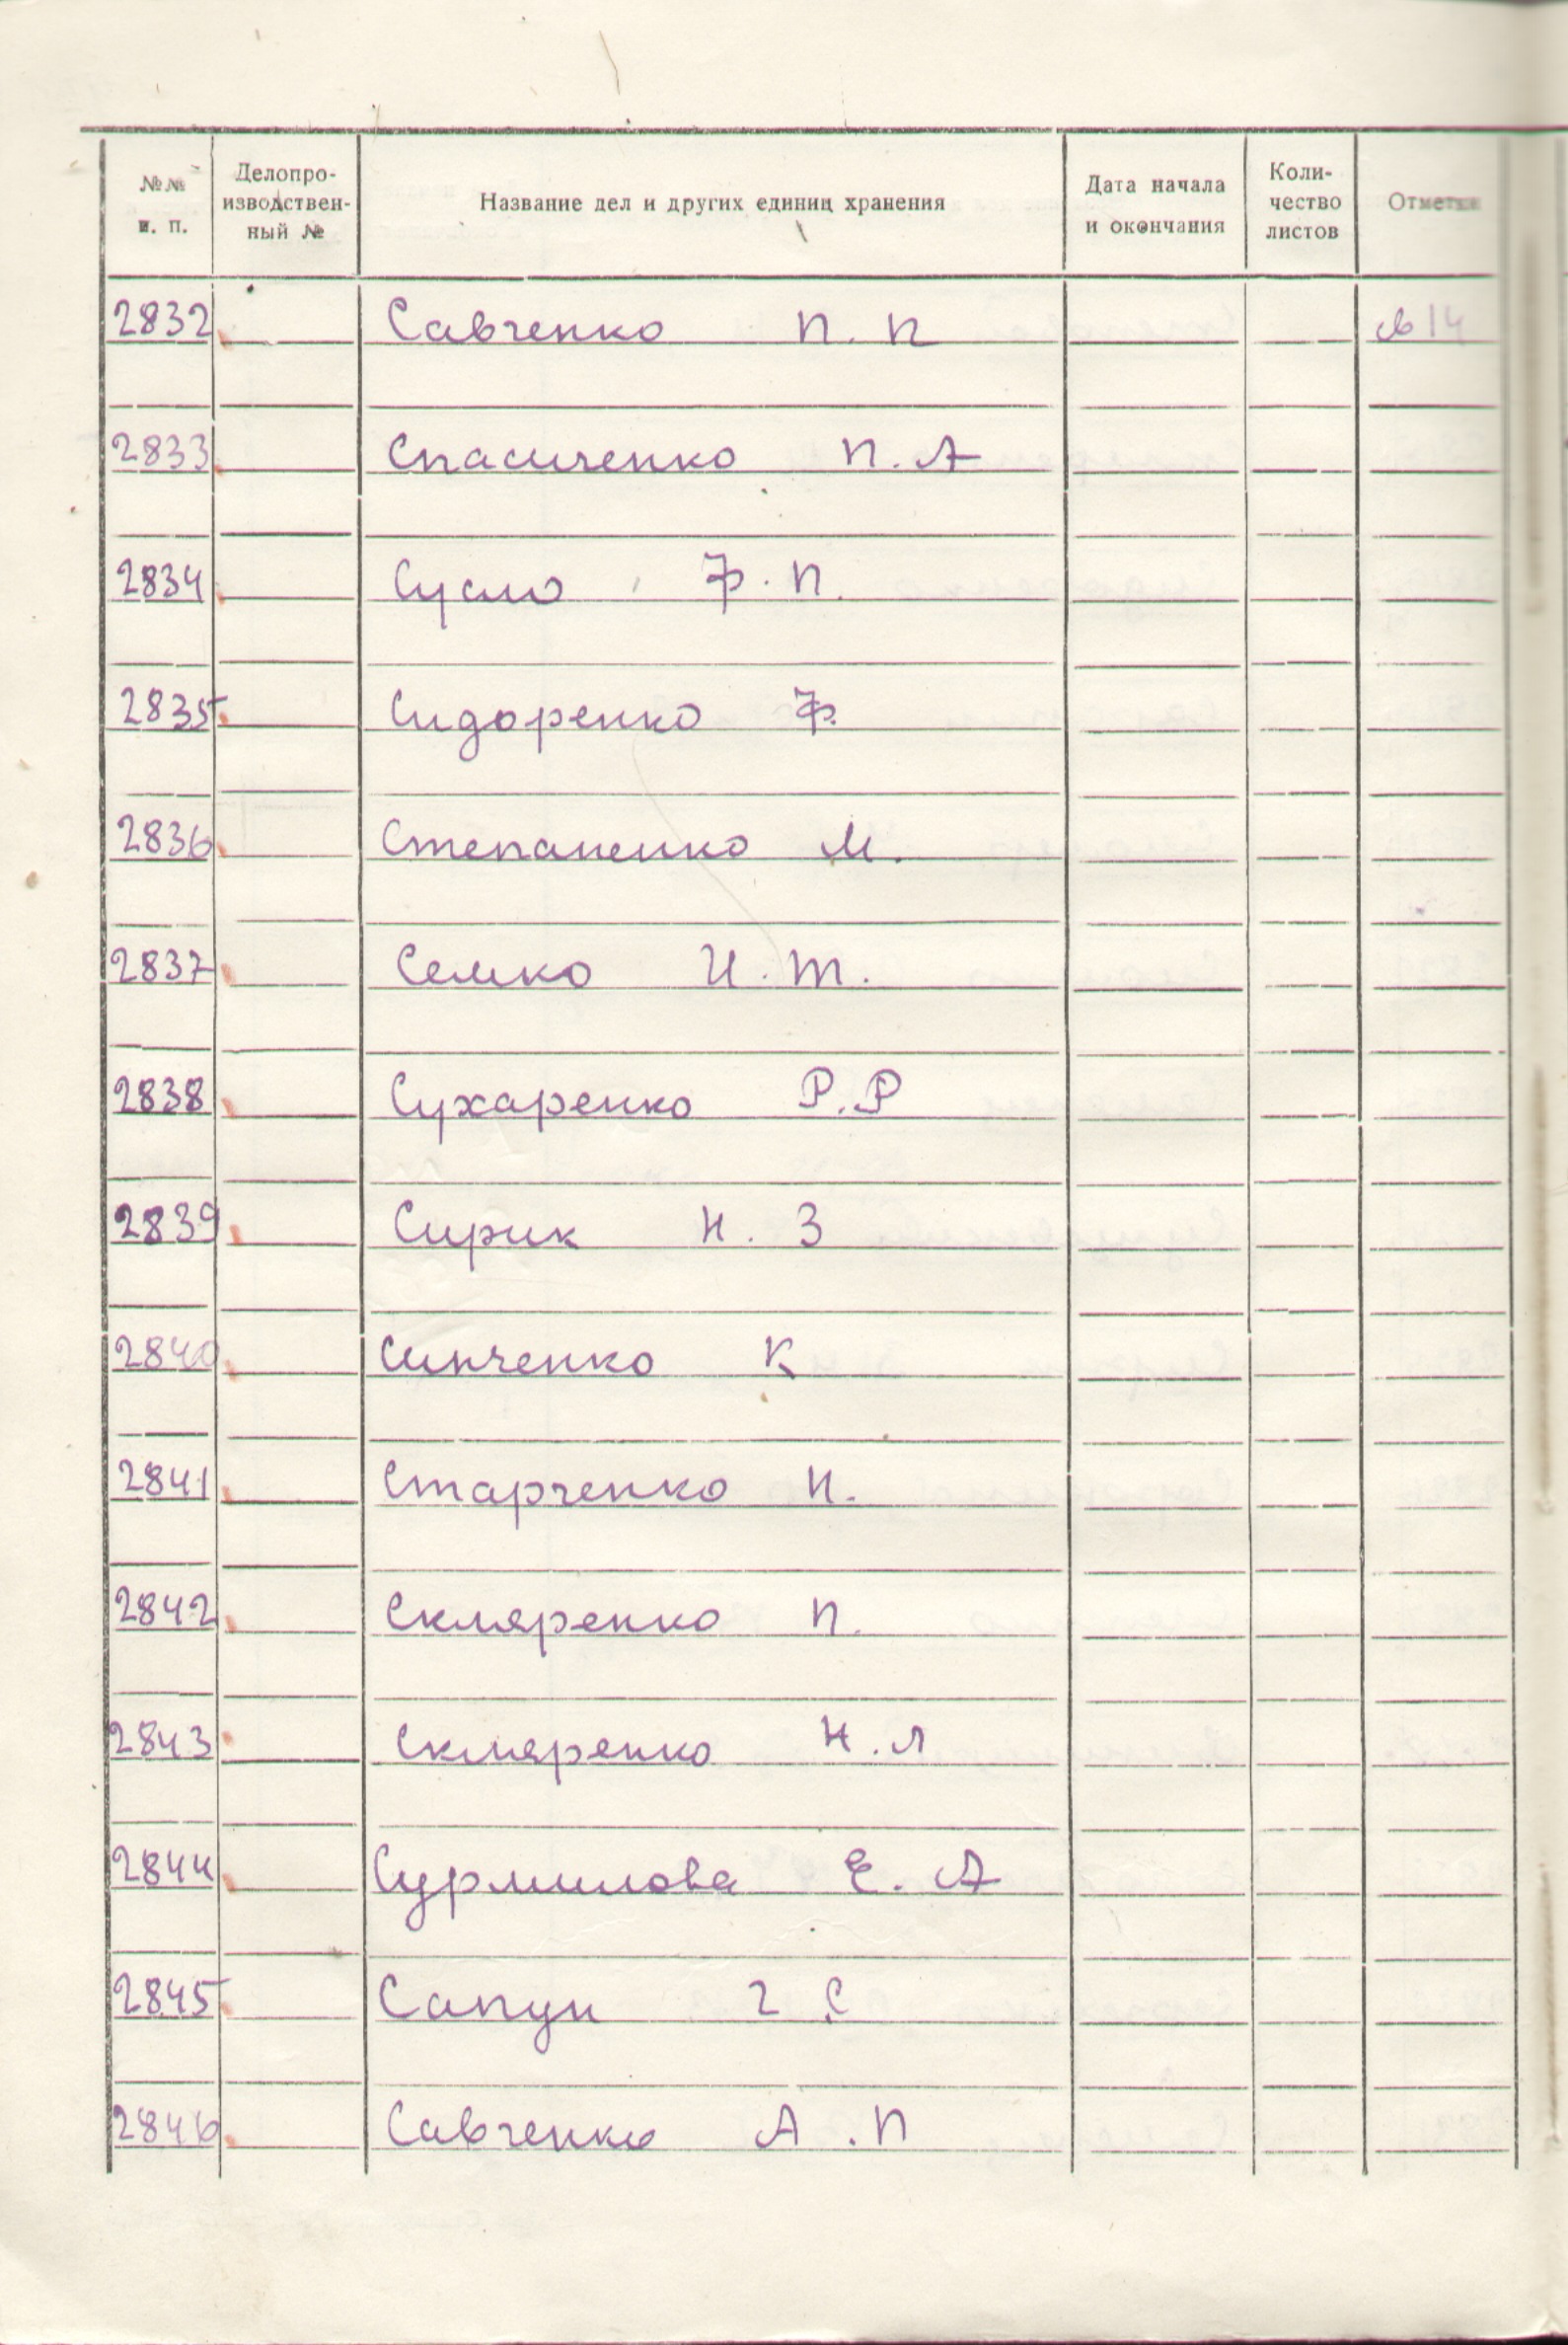 №№ п. п. Делопро-изводствен-ный № Название дел и других единиц хранения Дата начала и окончания Коли-чество листов Отметки
2832 Савченко П. П
2833 Спасиченко П. А
2834 Сусло Ф. П.
2835 Сидоренко Ф.
2836 Степаненко М.
2837 Семко И. Т.
2838 Сухаренко Р. Р
2839 Сирик Н. З
2840 Синченко К
2841 Старченко И.
2842 Скляренко П.
2843 Скляренко Н. Л
2844 Сурмилова Е. А
2845 Сапун Г С
2846 Савченко А. П